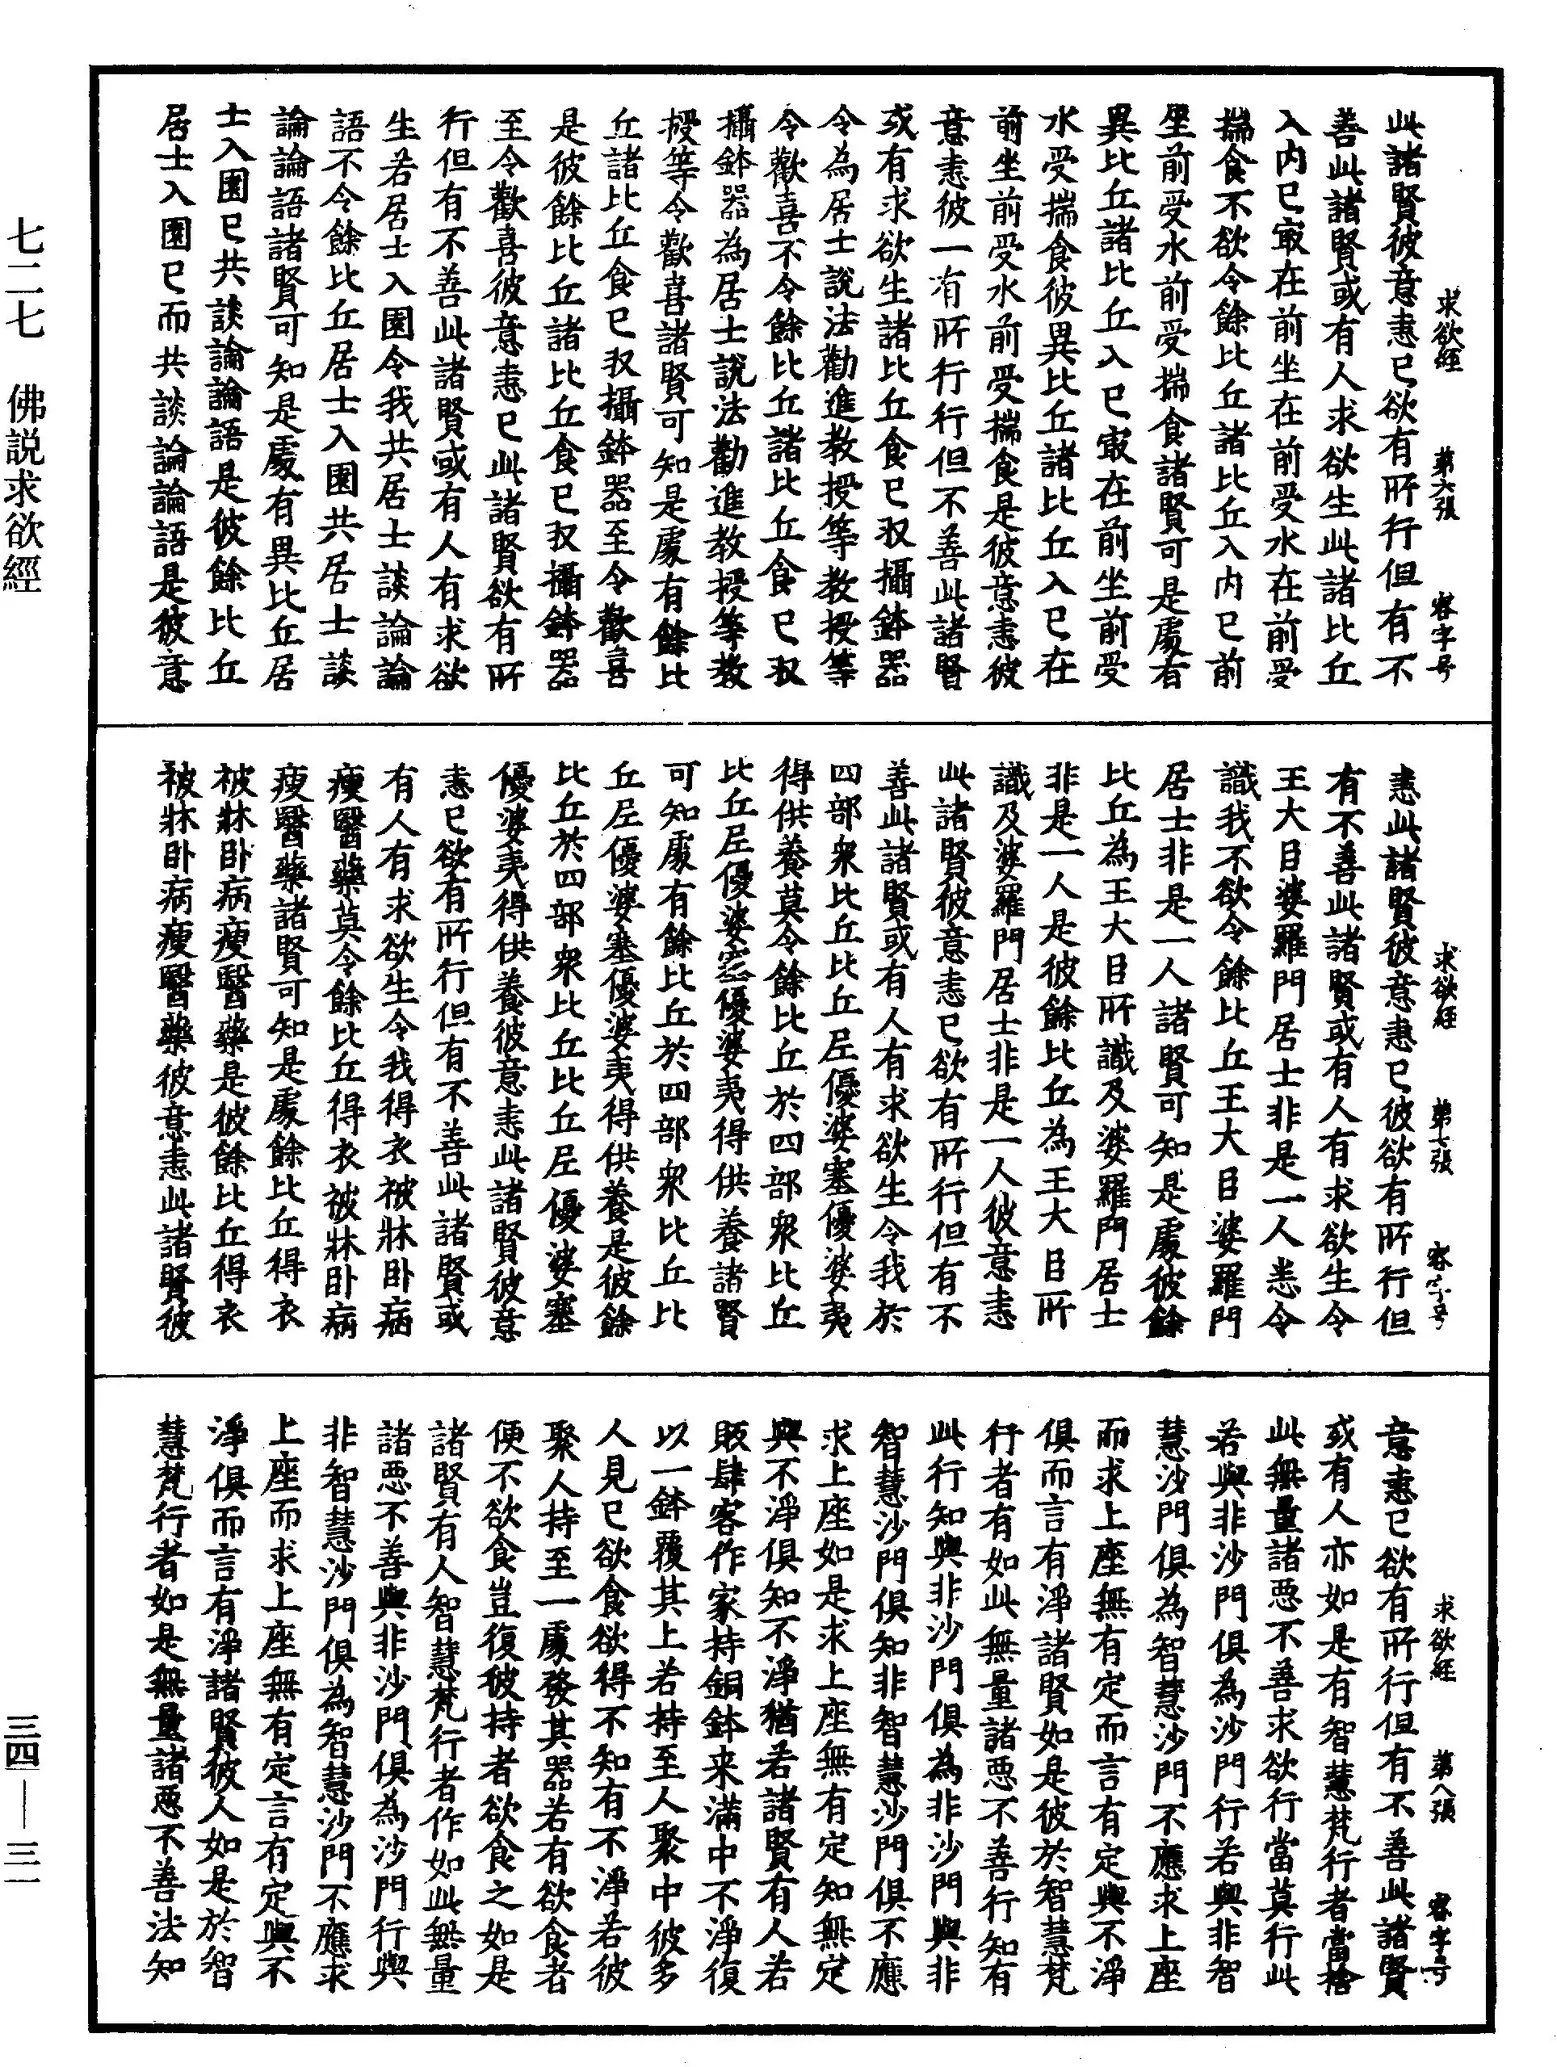 求欲經　第六張　容字号
此諸賢彼意恚已欲有所行但有不
善此諸賢或有人求欲生此諸比丘
入内已㝡在前坐在前受水在前受
揣食不欲令餘比丘諸比丘入内已前
坐前受水前受揣食諸賢可是處有
異比丘諸比丘入已㝡在前坐前受
水受揣食彼異比丘諸比丘入已在
前坐前受水前受揣食是彼意恚彼
意恚彼一有所行行但不善此諸賢
或有求欲生諸比丘食已収攝鉢器
令為居士説法勸進教授等教授等
令歡喜不令餘比丘諸比丘食已収
攝鉢器為居士説法勸進教授等教
授等令歡喜諸賢可知是處有餘比
丘諸比丘食已収攝鉢器至令歡喜
是彼餘比丘諸比丘食已収攝鉢器
至令歡喜彼意恚已此諸賢欲有所
行但有不善此諸賢或有人有求欲
生若居士入園令我共居士談論論
語不令餘比丘居士入園共居士談
論論語諸賢可知是處有異比丘居
士入園已共談論論語是彼餘比丘
居士入園已而共談論論語是彼意
求欲經　第七張　容字号
恚此諸賢彼意恚已彼欲有所行但
有不善此諸賢或有人有求欲生令
王大目婆羅門居士非是一人悉令
識我不欲令餘比丘王大目婆羅門
居士非是一人諸賢可知是處彼餘
比丘為王大目所識及婆羅門居士
非是一人是彼餘比丘為王大目所
識及婆羅門居士非是一人彼意恚
此諸賢彼意恚已欲有所行但有不
善此諸賢或有人有求欲生令我於
四部衆比丘比丘𡰱優婆塞優婆夷
得供養莫令餘比丘於四部衆比丘
比丘𡰱優婆塞優婆夷得供養諸賢
可知處有餘比丘於四部衆比丘比
丘𡰱優婆塞優婆夷得供養是彼餘
比丘於四部衆比丘比丘𡰱優婆塞
優婆夷得供養彼意恚此諸賢彼意
恚已欲有所行但有不善此諸賢或
有人有求欲生令我得衣被牀卧病
瘦醫藥莫令餘比丘得衣被牀卧病
瘦醫藥諸賢可知是處餘比丘得衣
被牀卧病瘦醫藥是彼餘比丘得衣
被牀卧病瘦醫藥彼意恚此諸賢彼
求欲經　第八張　容字号
意恚已欲有所行但有不善此諸賢
或有人亦如是有智慧梵行者當捨
此無量諸惡不善求欲行當莫行此
若與非沙門俱為沙門行若與非智
慧沙門俱為智慧沙門不應求上座
而求上座無有定而言有定與不淨
俱而言有淨諸賢如是彼於智慧梵
行者有如此無量諸惡不善行知有
此行知與非沙門俱為非沙門與非
智慧沙門俱知非智慧沙門俱不應
求上座如是求上座無有定知無定
與不淨俱知不淨猶若諸賢有人若
販肆客作家持銅鉢来滿中不淨復
以一鉢覆其上若持至人聚中彼多
人見已欲食欲得不知有不淨若彼
聚人持至一處發其器若有欲食者
便不欲食豈復彼持者欲食之如是
諸賢有人智慧梵行者作如此無量
諸惡不善與非沙門俱為沙門行與
非智慧沙門俱為智慧沙門不應求
上座而求上座無有定言有定與不
淨俱而言有淨諸賢彼人如是於智
慧梵行者如是無量諸惡不善法知
七二七　佛説求欲經
三四——三一